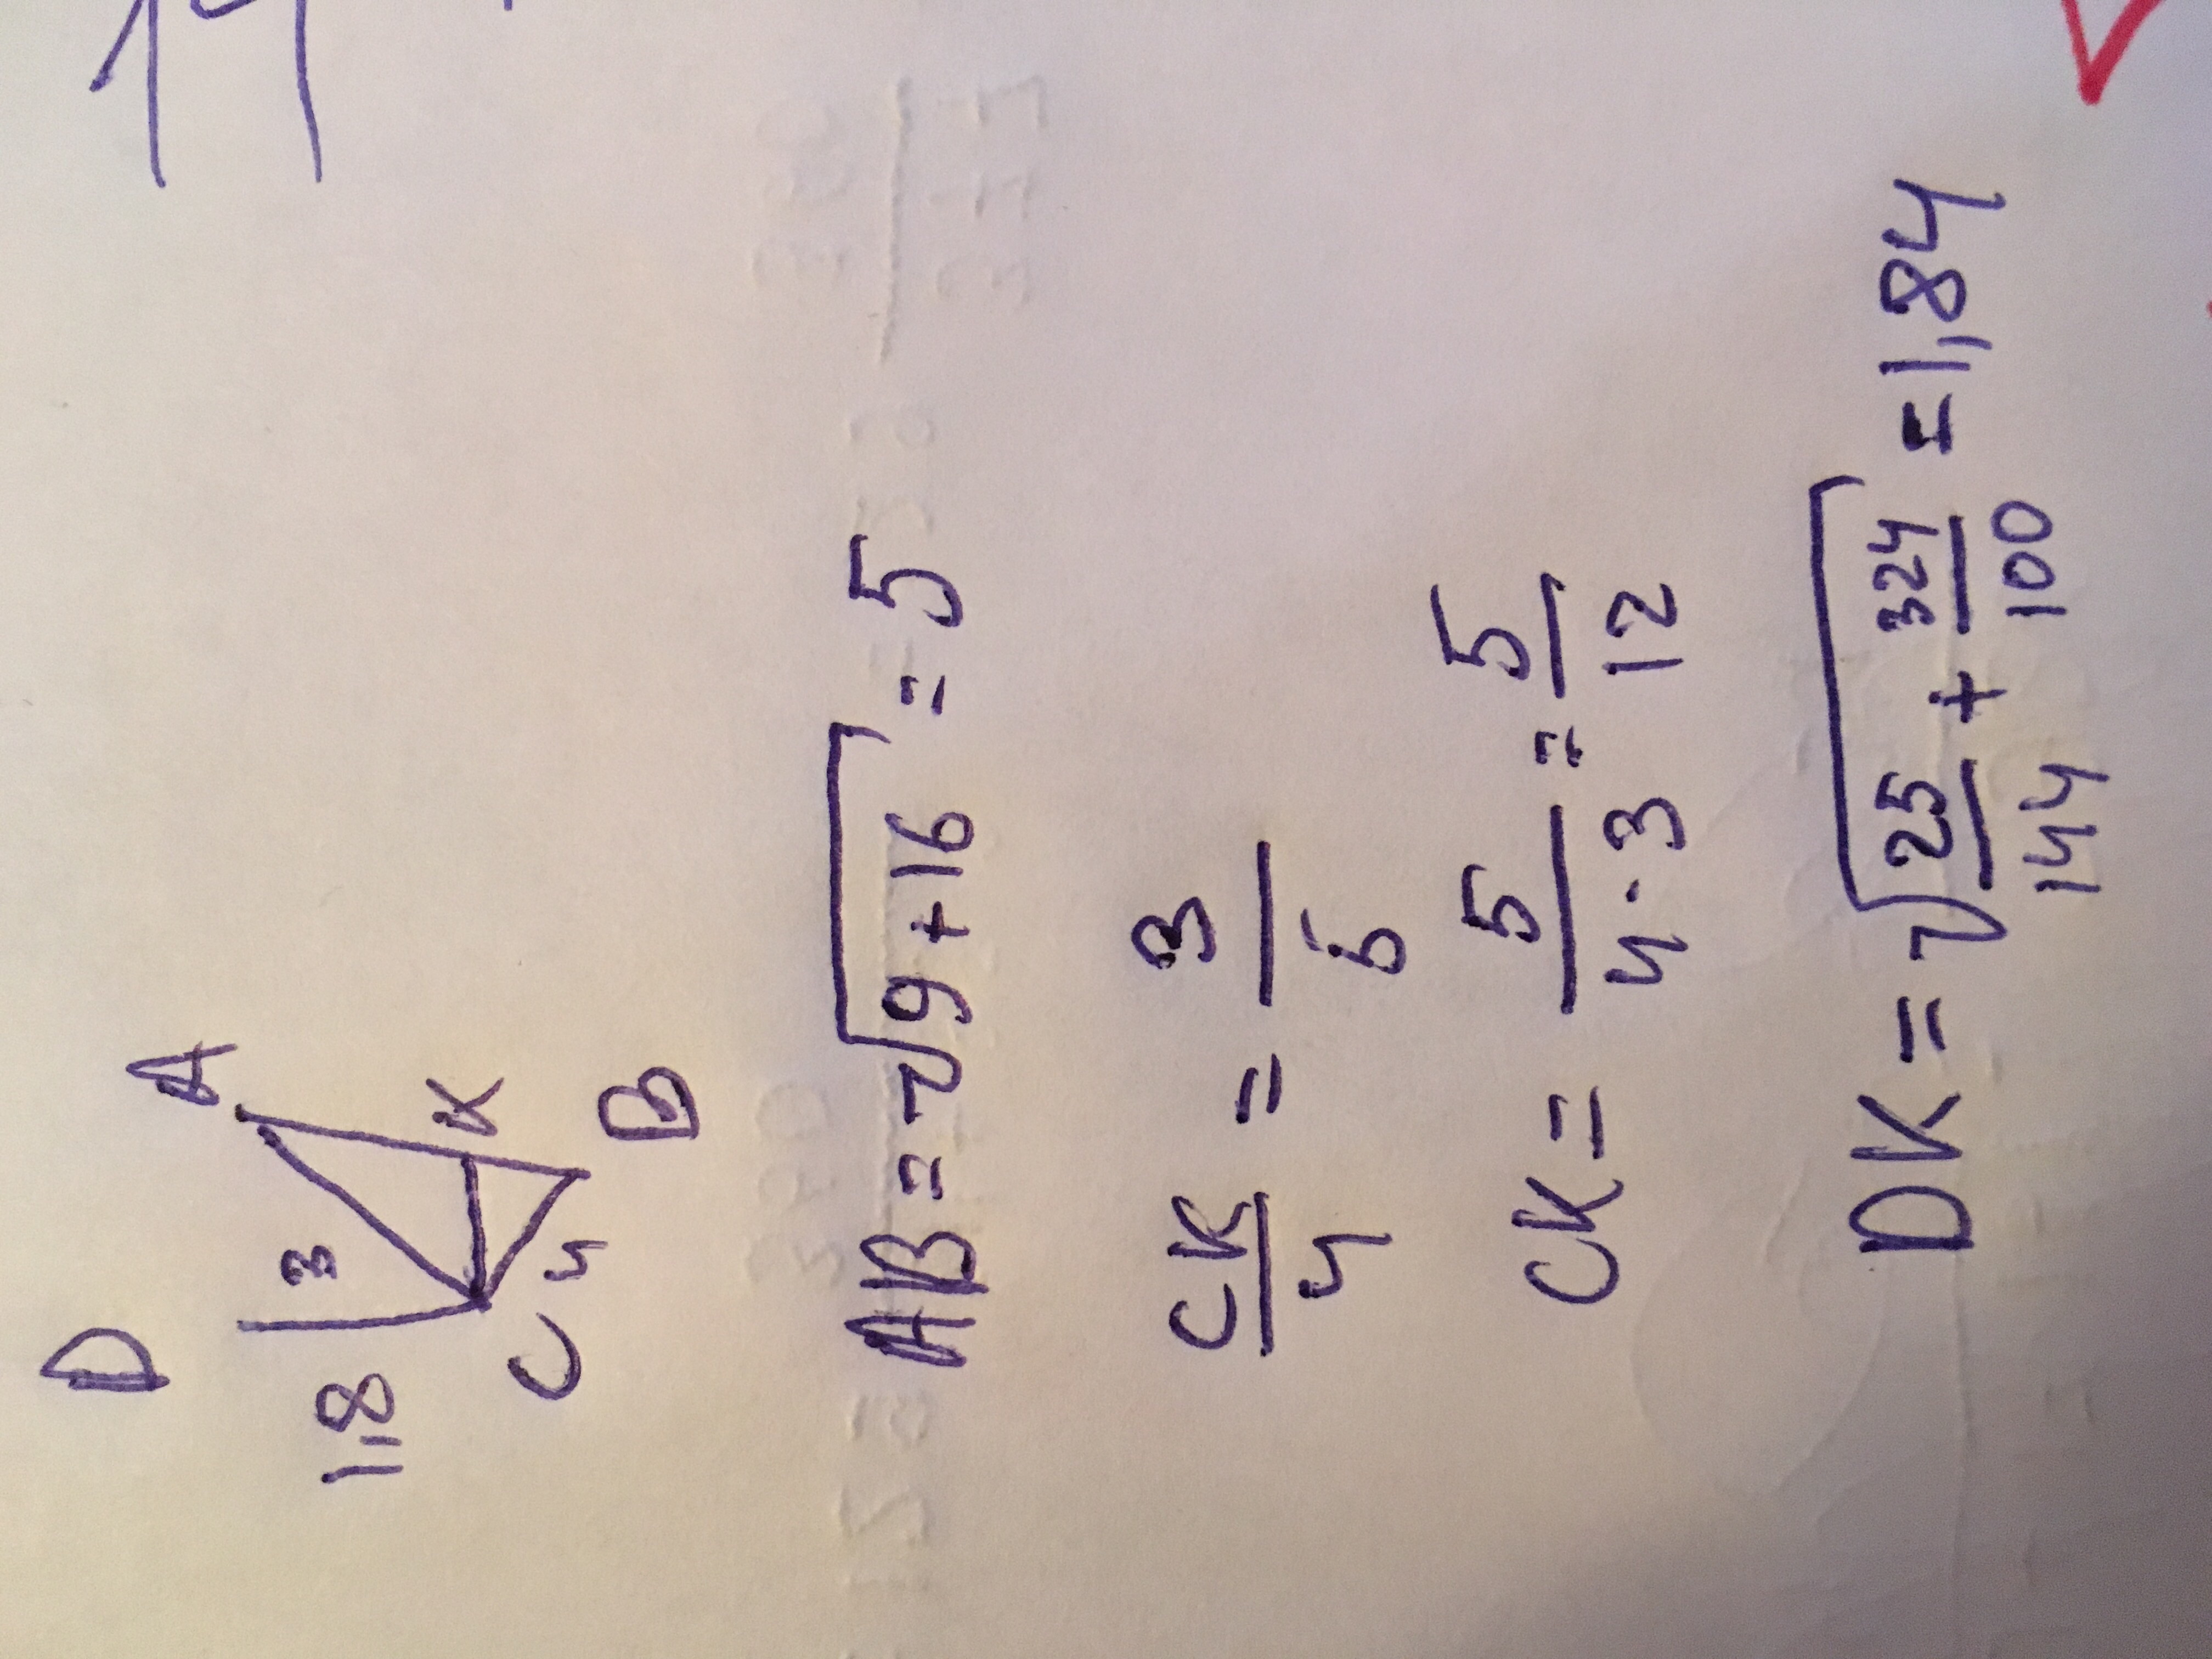 14
D A
1,8 3
K
C 4 B
AB = √9+16 = 5
CK/4 = 3/5
CK = 5/4·3 = 5/12
DK = √25/144 + 324/100 = 1,84